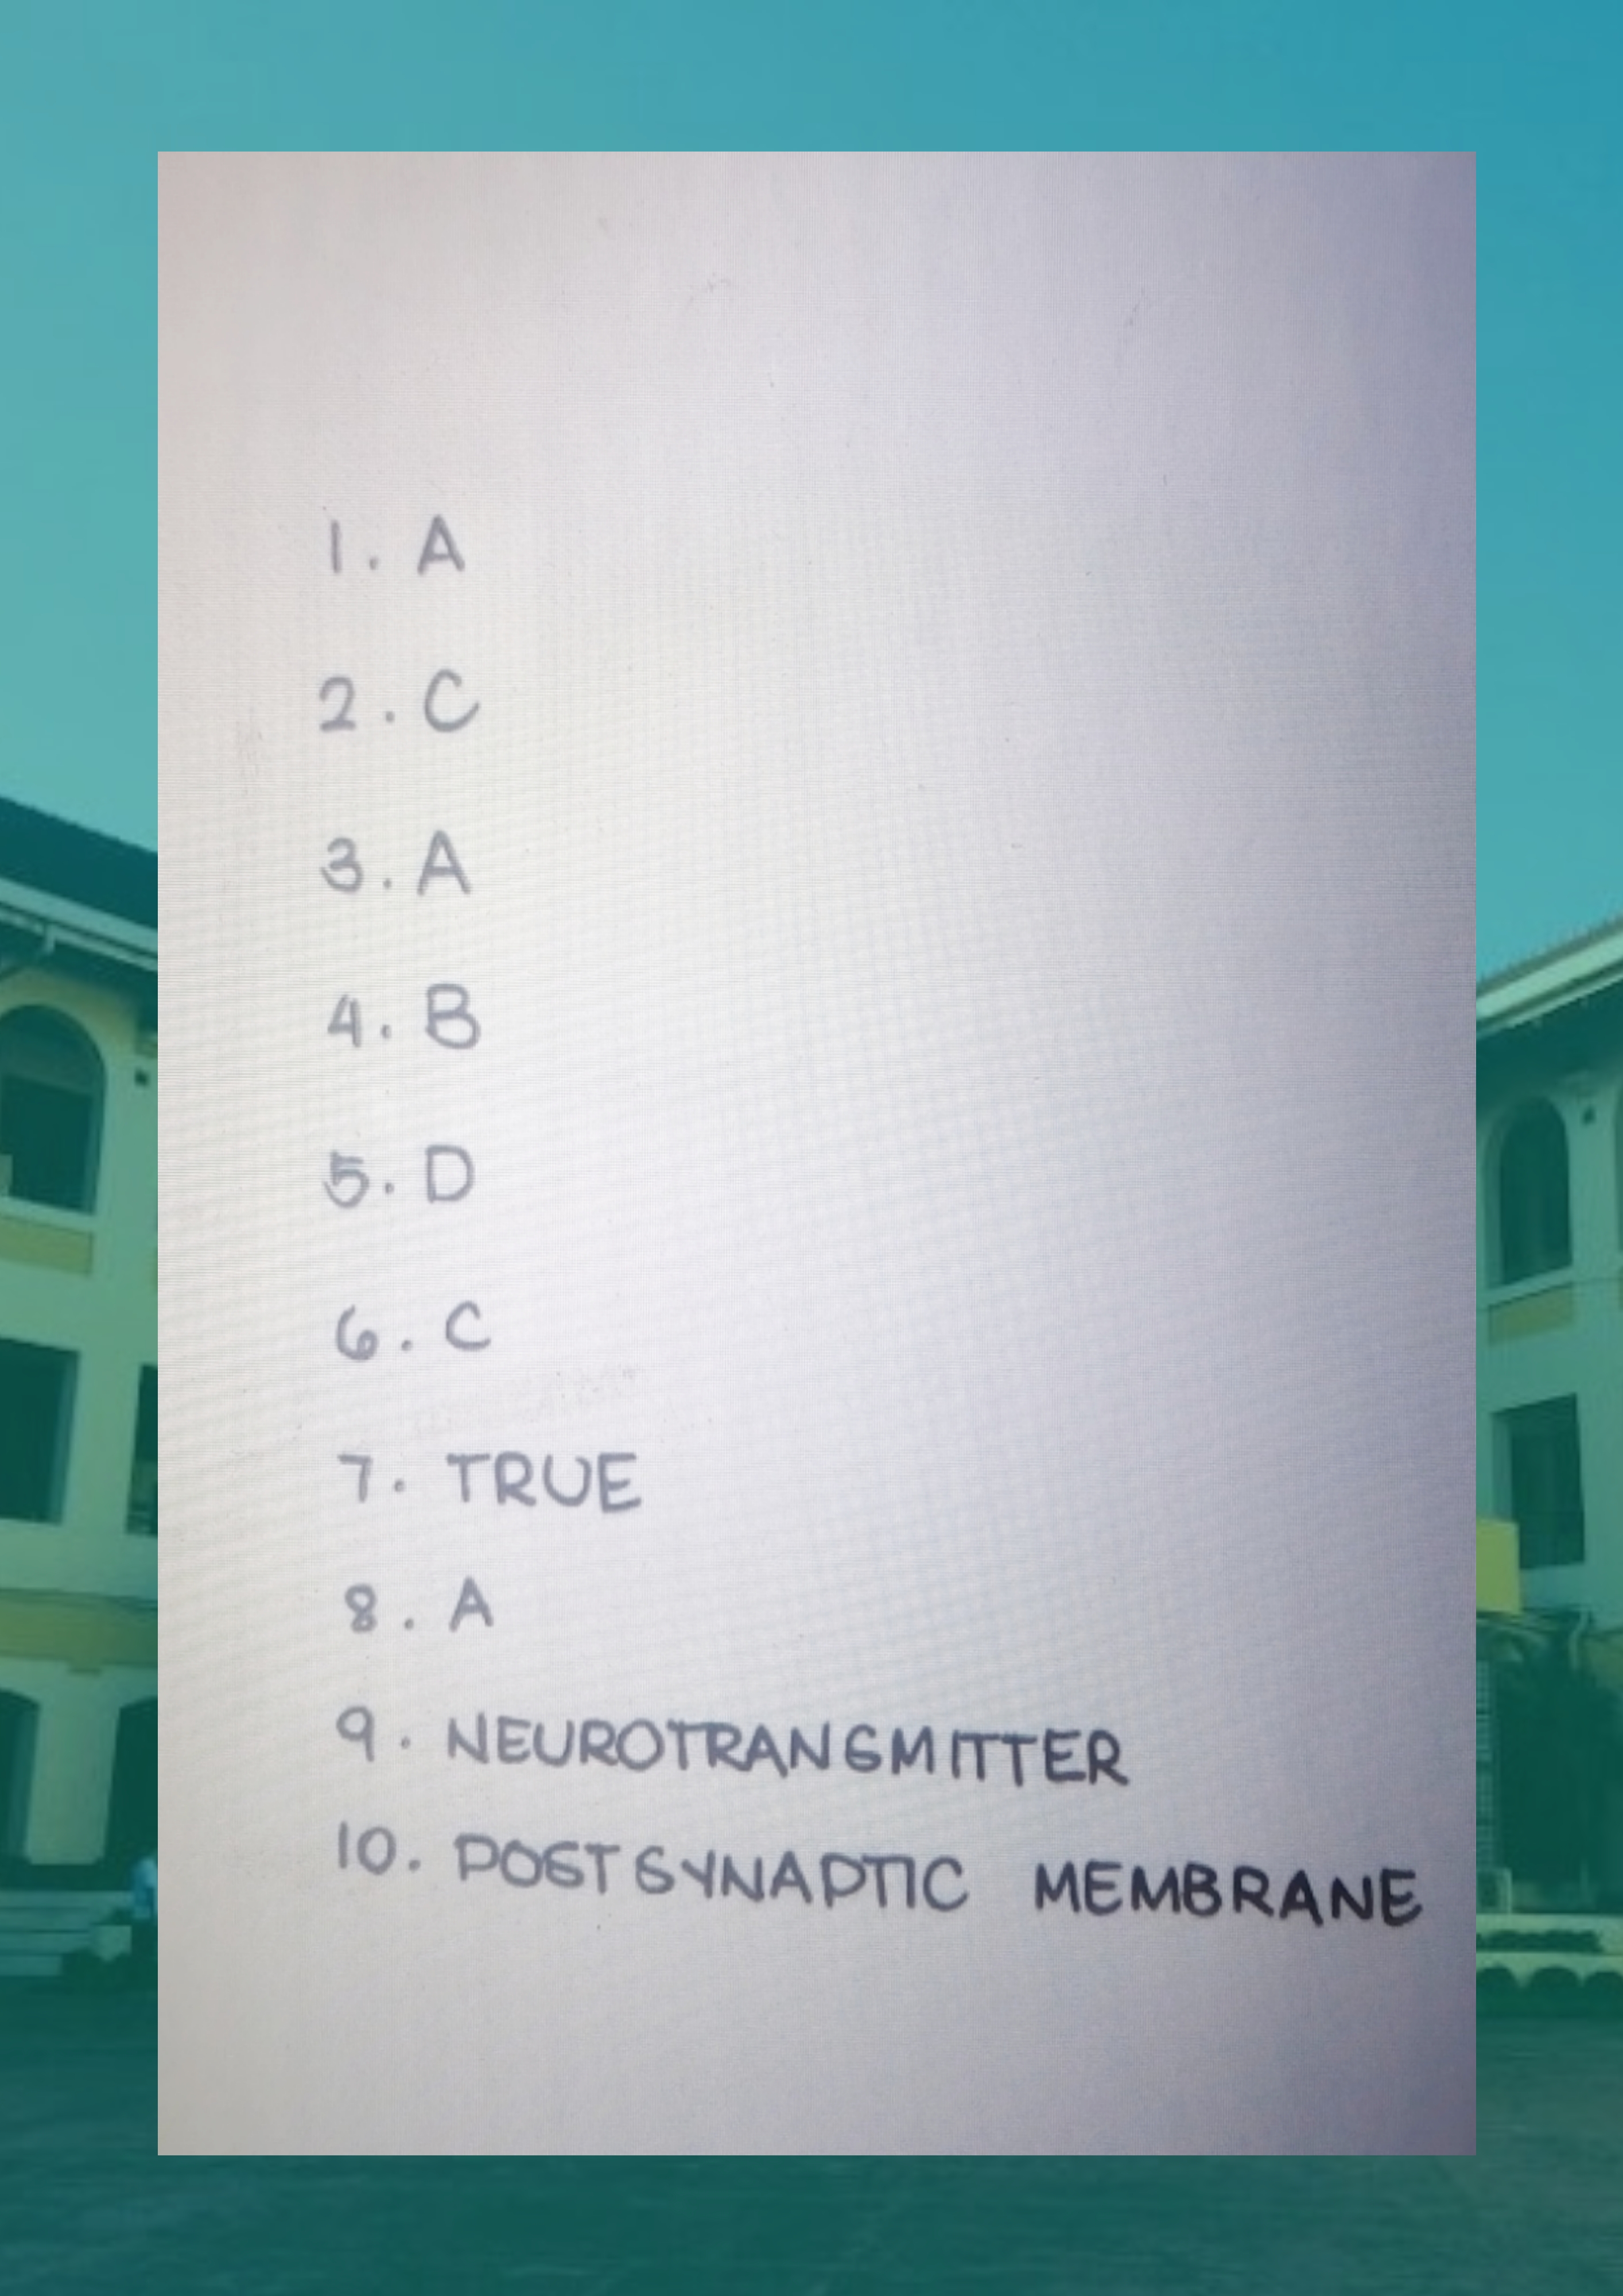 1. A
2. C
3. A
4. B
5. D
6. C
7. TRUE
8. A
9. NEUROTRANSMITTER
10. POSTSYNAPTIC MEMBRANE